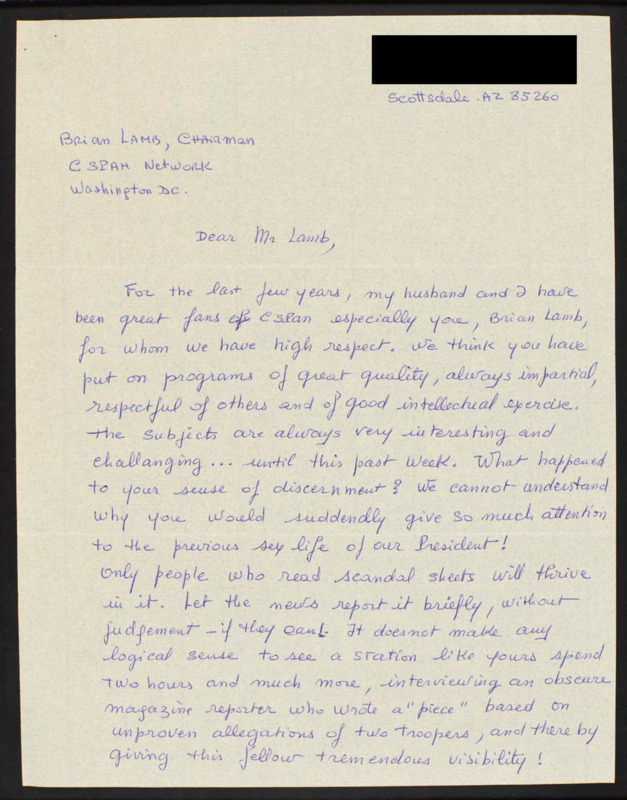 Scottsdale . AZ 85260
Brian LAMB, CHAirman
C SPAN NetWORK
Washington DC.
Dear Mr Lamb,
For the last few years, my husband and I have
been great fans of C Span especially you, Brian Lamb,
for whom we have high respect. We think you have
put on programs of great quality, always impartial,
respectful of others and of good intellectual exercise.
The subjects are always very interesting and
challanging... until this past week. What happened
to your sense of discernment? We cannot understand
why you would suddendly give so much attention
to the previous sex life of our President!
Only people who read scandal sheets will thrive
in it. Let the news report it briefly, without
judgement - if they can! It doesnot make any
logical sense to see a station like yours spend
two hours and much more, interviewing an obscure
magazine reporter who wrote a "piece" based on
unproven allegations of two troopers, and there by
giving this fellow tremendous visibility!